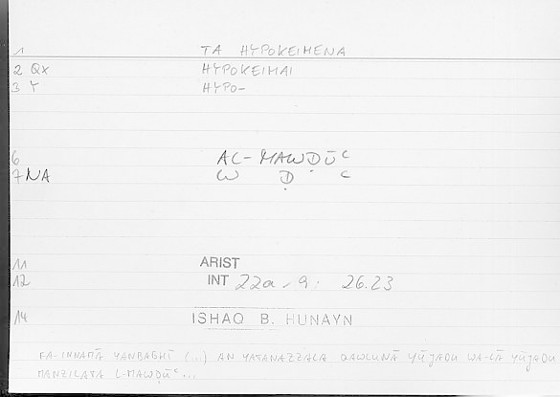 1 TA HYPOKEIMENA
2 QX HYPOKEIMAI
3 Y HYPO-
6 AL-MAWḌŪʿ
7 NA W Ḍ ʿ
11 ARIST
12 INT 22a, 9; 26.23
14 ISHAQ B. HUNAYN
FA-INNAMĀ YANBAGHĪ (...) AN YATANAZZALA QAWLUNĀ YŪJADU WA-LĀ YŪJADU
MANZILATA L-MAWḌŪʿ...